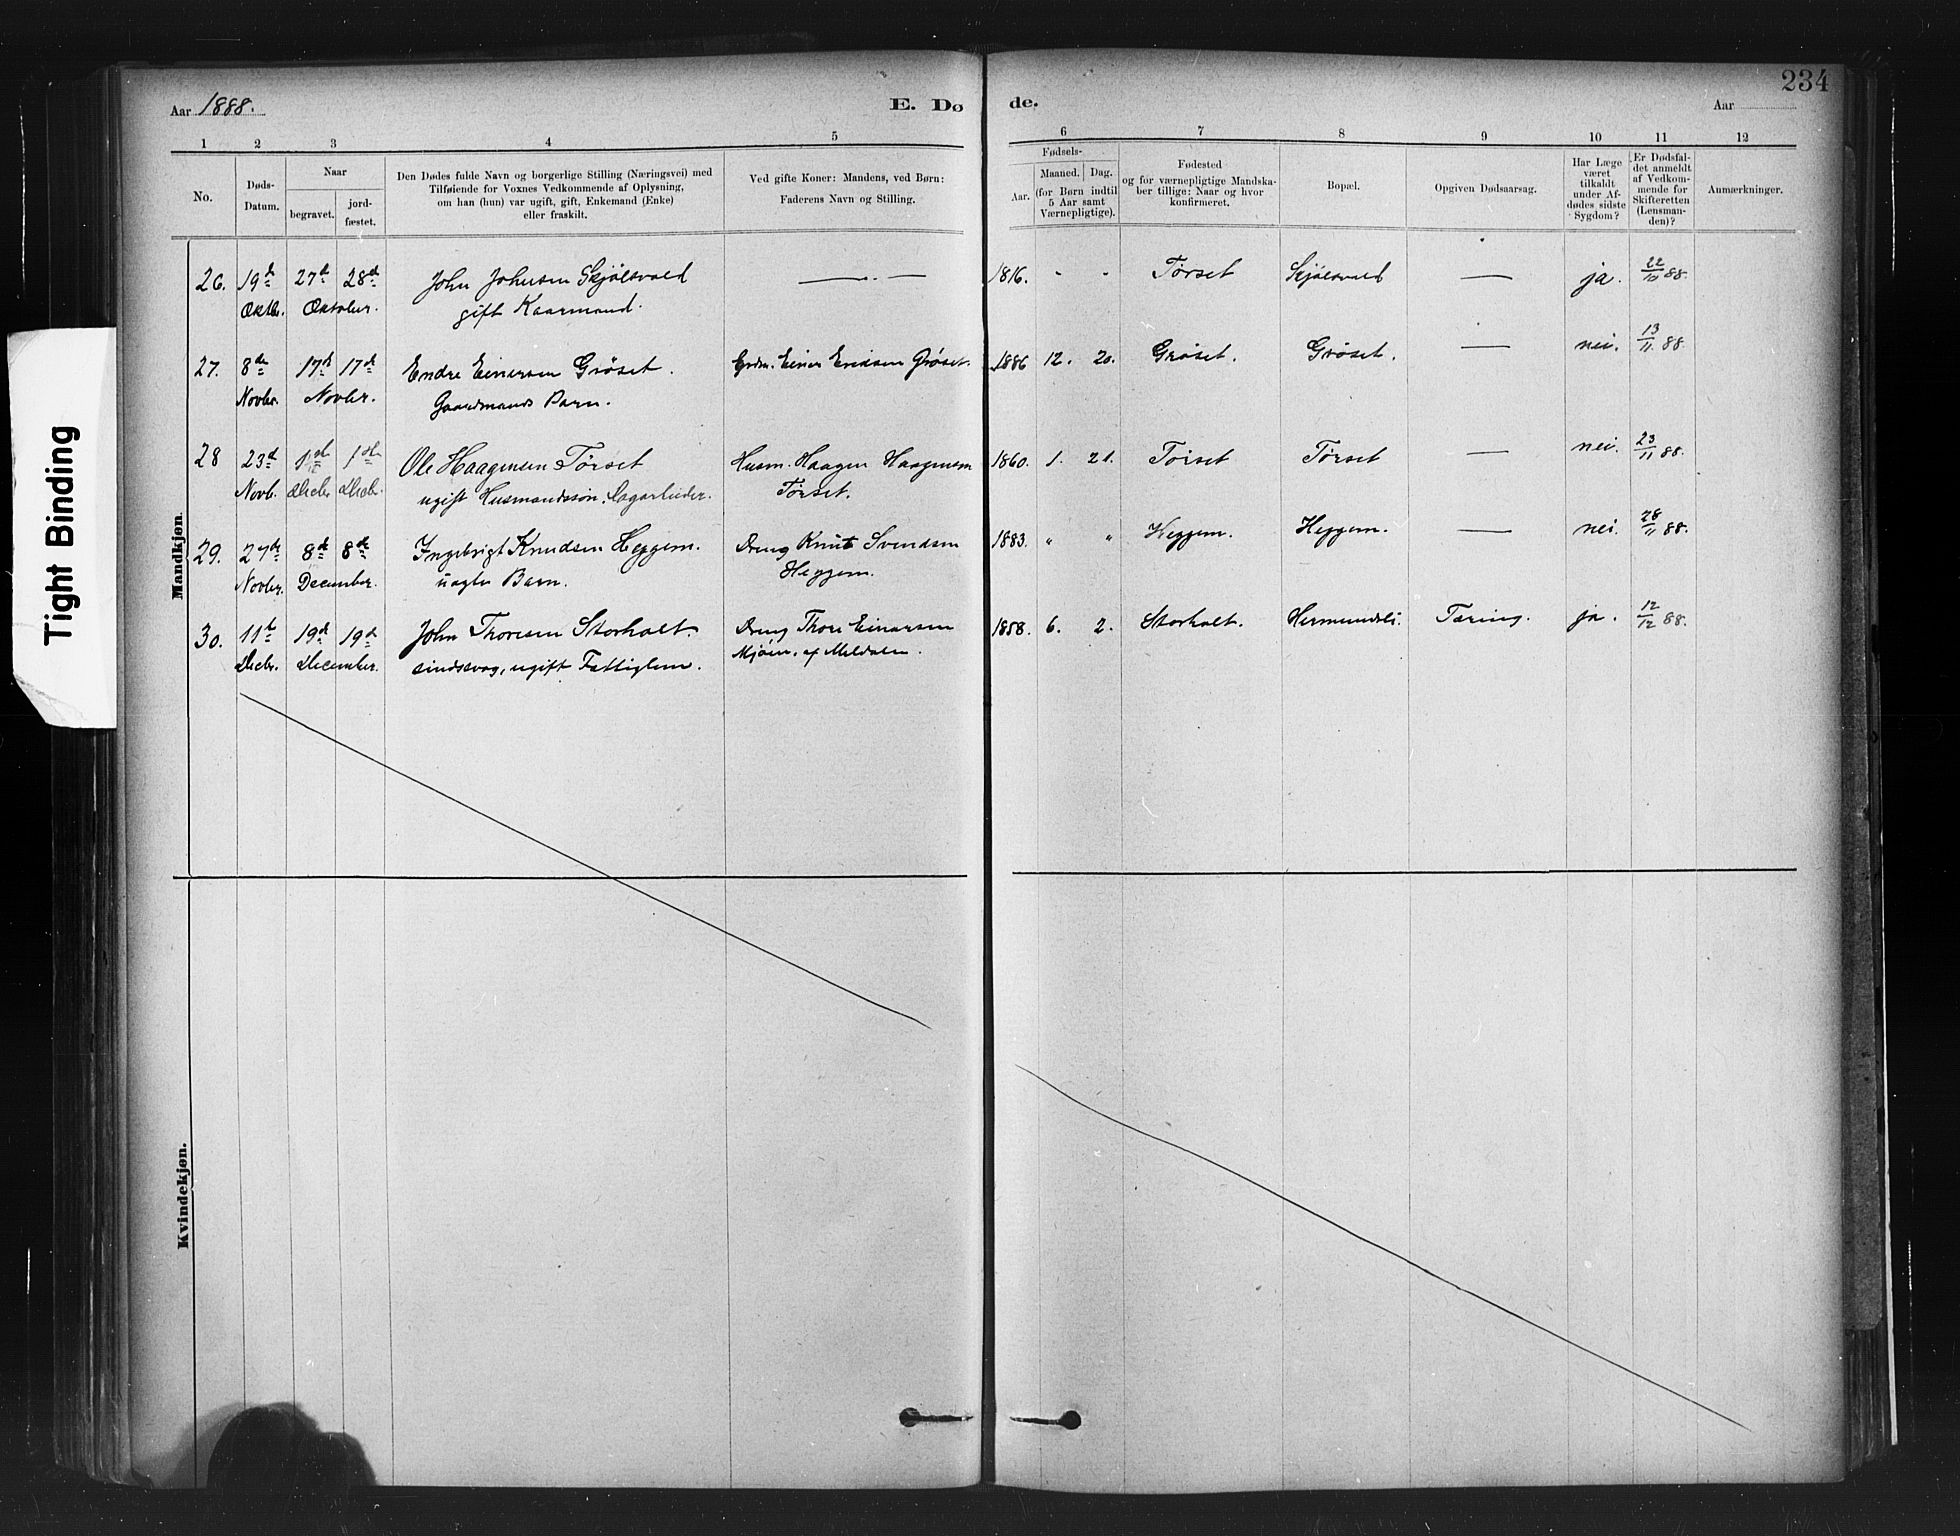 234
Aar 1888.
E. Dø
de.
Aar
1 2 3 4 5
6 7 8 9 10 11 12
No.
Døds-
Datum.
Naar
begravet.
jord-
fæstet.
Den Dødes fulde Navn og borgerlige Stilling (Næringsvei) med
Tilføiende for Voxnes Vedkommende af Oplysning,
om han (hun) var ugift, gift, Enkemand (Enke)
eller fraskilt.
Ved gifte Koner: Mandens, ved Børn:
Faderens Navn og Stilling.
Fødsels-
Aar.
Maaned. Dag.
(for Børn indtil
5 Aar samt
Værnepligtige).
Fødested
og for værnepligtige Mandska-
ber tillige: Naar og hvor
konfirmeret.
Bopæl.
Opgiven Dødsaarsag.
Har Læge
været
tilkaldt
under Af-
dødes sidste
Sygdom?
Er Dødsfal-
det anmeldt
af Vedkom-
mende for
Skifteretten
(Lensman-
den)?
Anmærkninger.
Mandkjøn.
26. 19d 27d 28d John Johnsen Skjølsvold — 1816. " " Tørset Skjølsvold — ja. 22/10 88.
Oktbr. Oktober. gift Kaarmand.
27. 8de 17d 17d Endre Einersen Grøset. Grdm. Einer Eriksen Grøset. 1886 12. 20. Grøset. Grøset. — nei. 13/11 88.
Novbr. Novbr. Gaardmands Barn.
28 23d 1d 1d Ole Haagensen Tørset Husm. Haagen Haagensen 1860. 1. 21. Tørset Tørset — nei. 23/11 88.
Novb. Decbr Decbr. ugift Husmandssøn. Tørset.
29. 27de 8d 8de Ingebrigt Knudsen Heggem. Dreng Knut Svendsen 1883. " " Heggem. Heggem. — nei. 28/11 88.
Novbr. December. uægte Barn. Heggem.
30. 11t 19d 19d John Thoresen Storholt. Dreng Thore Einarsen 1858. 6. 2. Storholt. Hermundsli. Tæring. ja. 12/12 88.
Decbr. December. sindssvag, ugift Fattiglem. Mjøen, af Meldalen.
Kvindekjøn.
Tight Binding